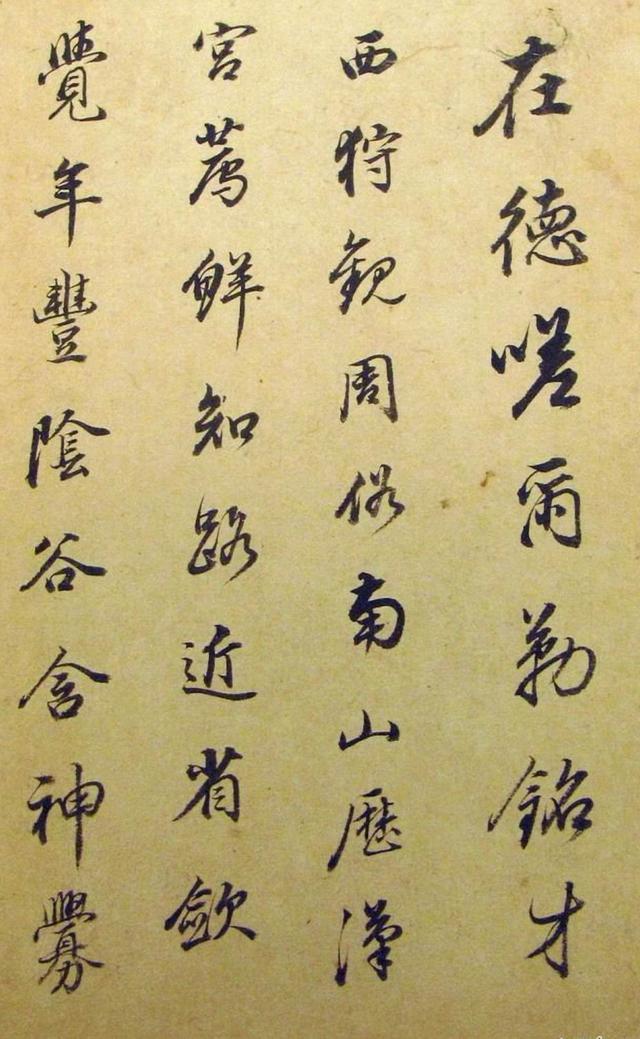 在德嗟爾勒銘才
西狩觀周俗南山歷漢
宮薦鮮知路近省斂
覺年豐陰谷含神爨